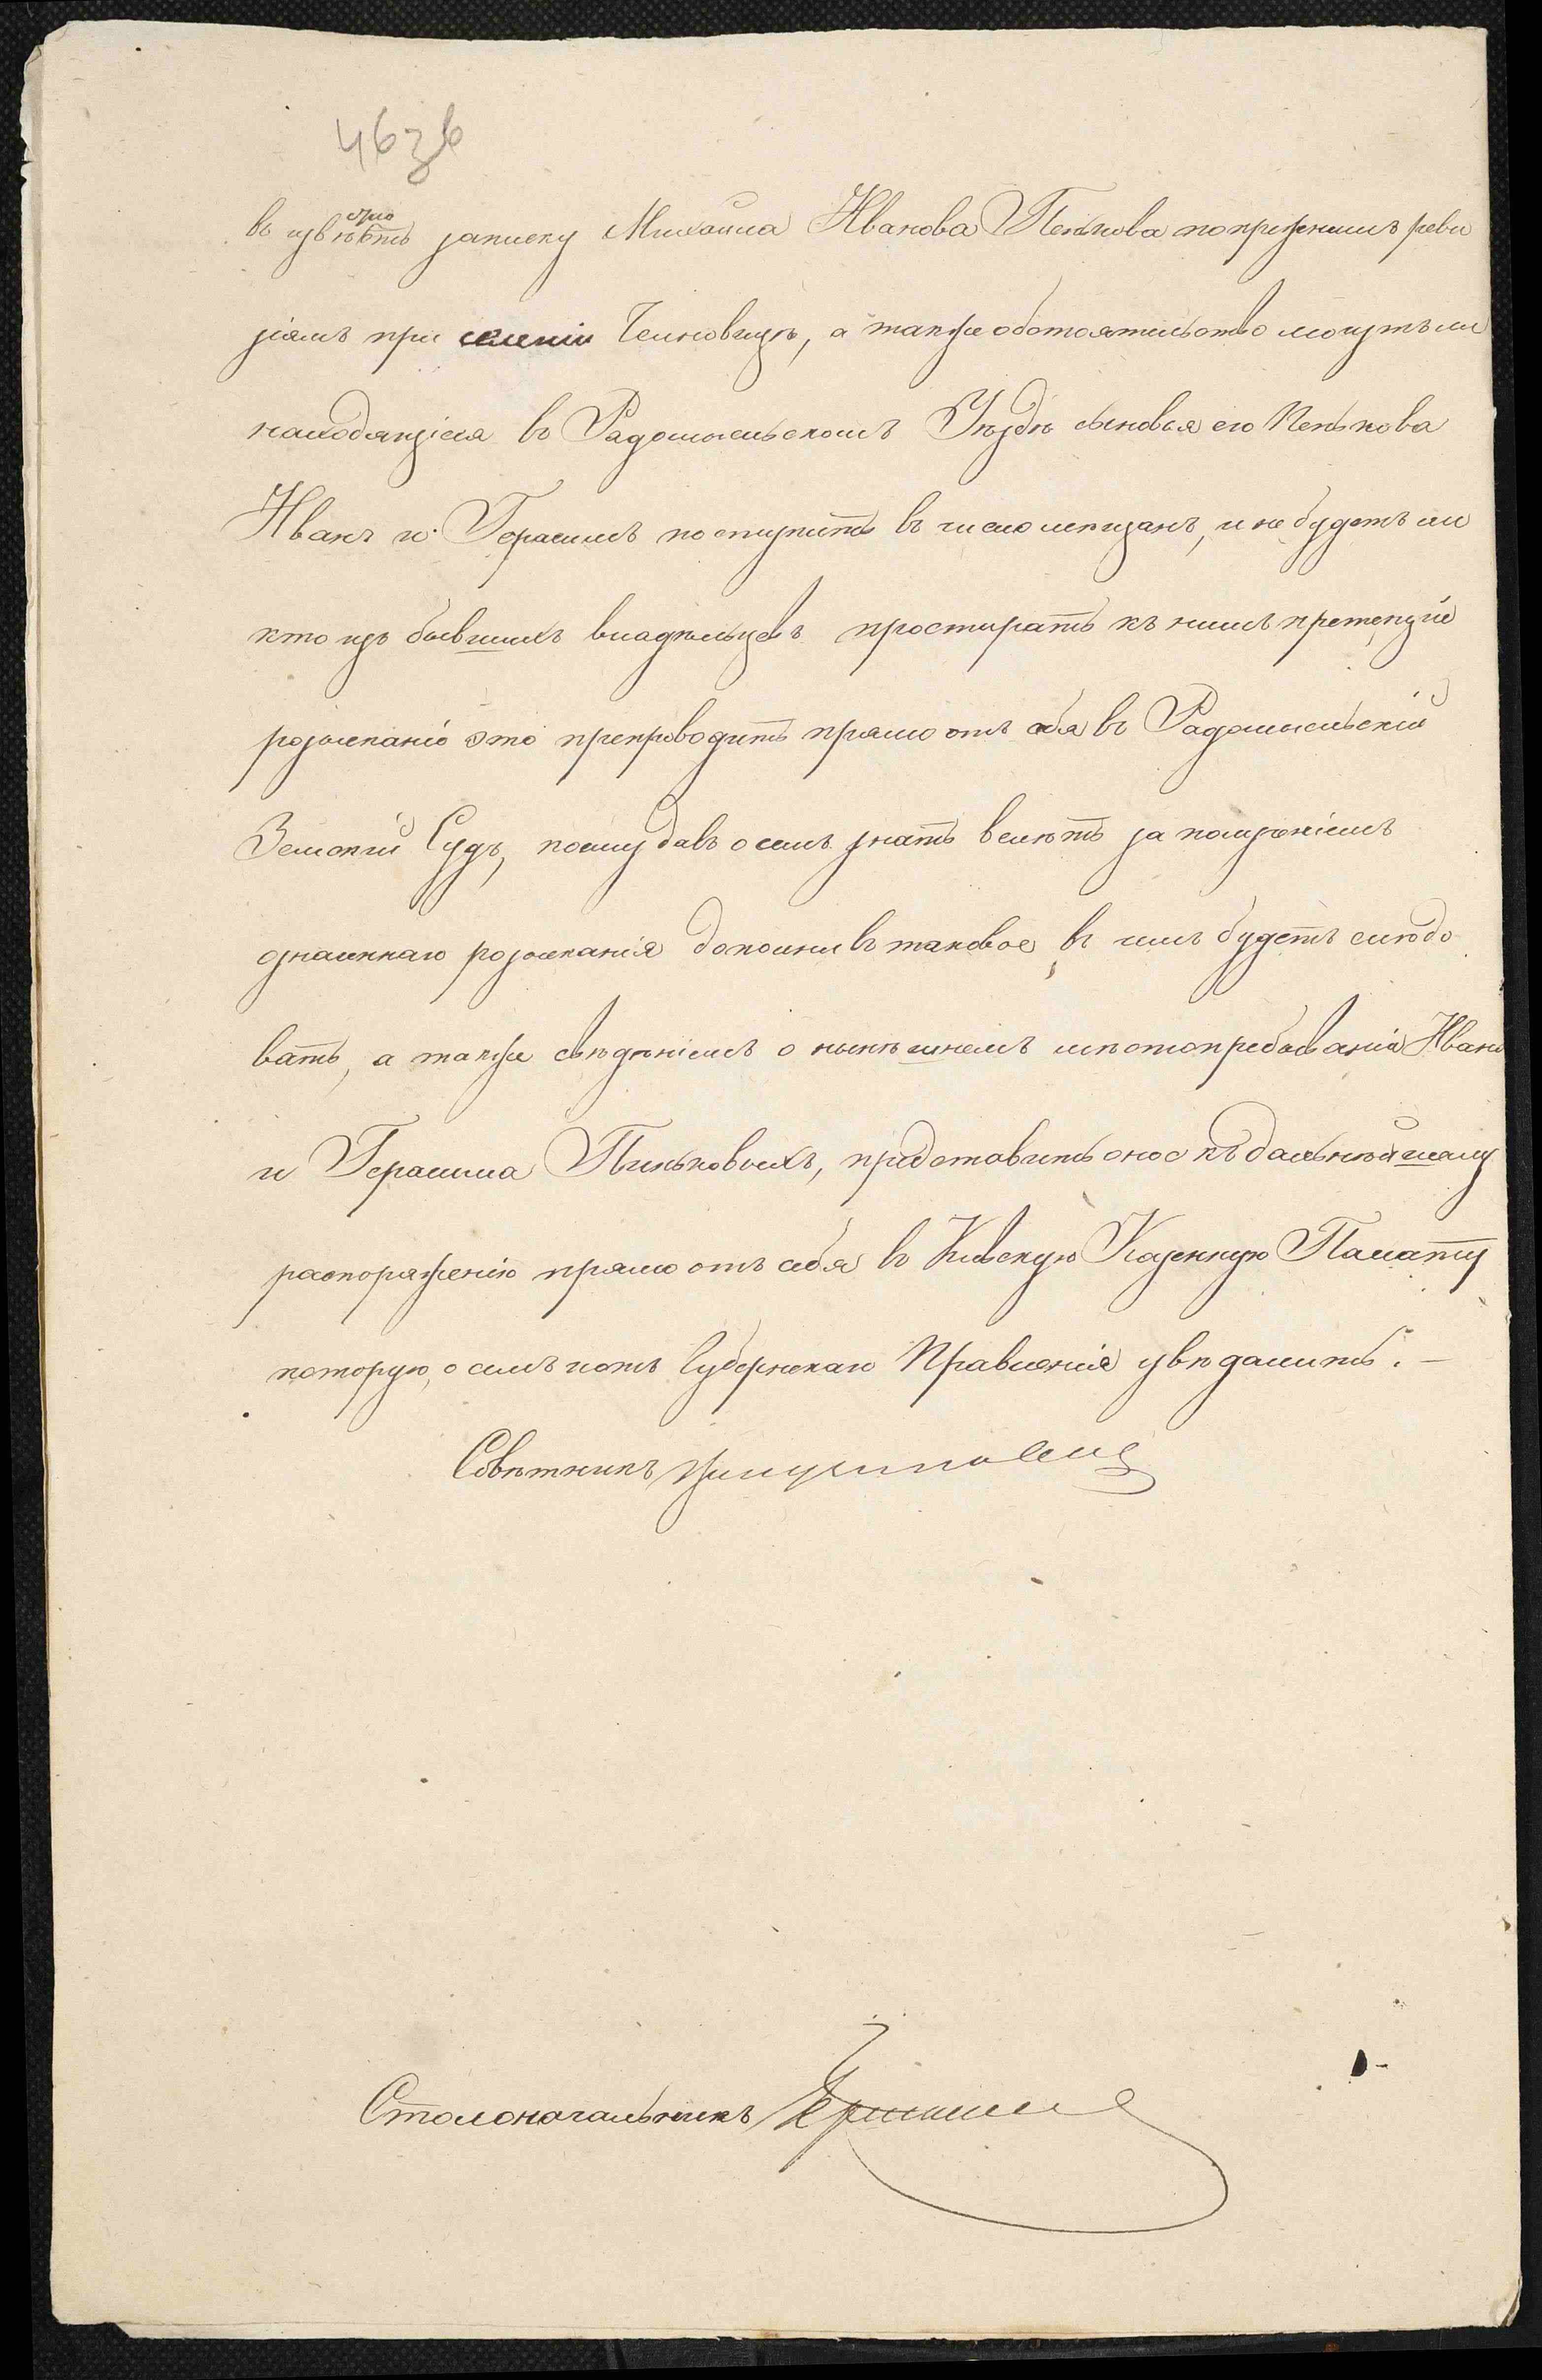 463б
въ извѣстность записку Михаила Иванова Пенькова попрежнимъ реви
зіямъ при селеніи Челновицѣ, а также обстоятельство могутъ ли
находящіеся въ Радомысльскомъ Уѣздѣ сыновья его Пенькова
Иванъ и Герасимъ поступить въ число мещанъ, и не будетъ ли
кто изъ бывшихъ владѣльцевъ простирать къ нимъ претензіи
розысканіе это препроводить прямо отъ себя въ Радомысльскій
Земскій Судъ, коему давъ о семъ знать велѣть за полученіемъ
означеннаго розысканія дополнивъ таковое, въ чемъ будетъ слѣдо
вать, а также свѣдѣніемъ о нынѣшнемъ мѣстопребываніи Ивана
и Герасима Пеньковыхъ, представить оное къ дальнѣйшему
распоряженію прямо отъ себя въ Кіевскую Казенную Палату
которую, о семъ и отъ Губернскаго Правленія увѣдомить. —
Совѣтникъ
Столоначальникъ